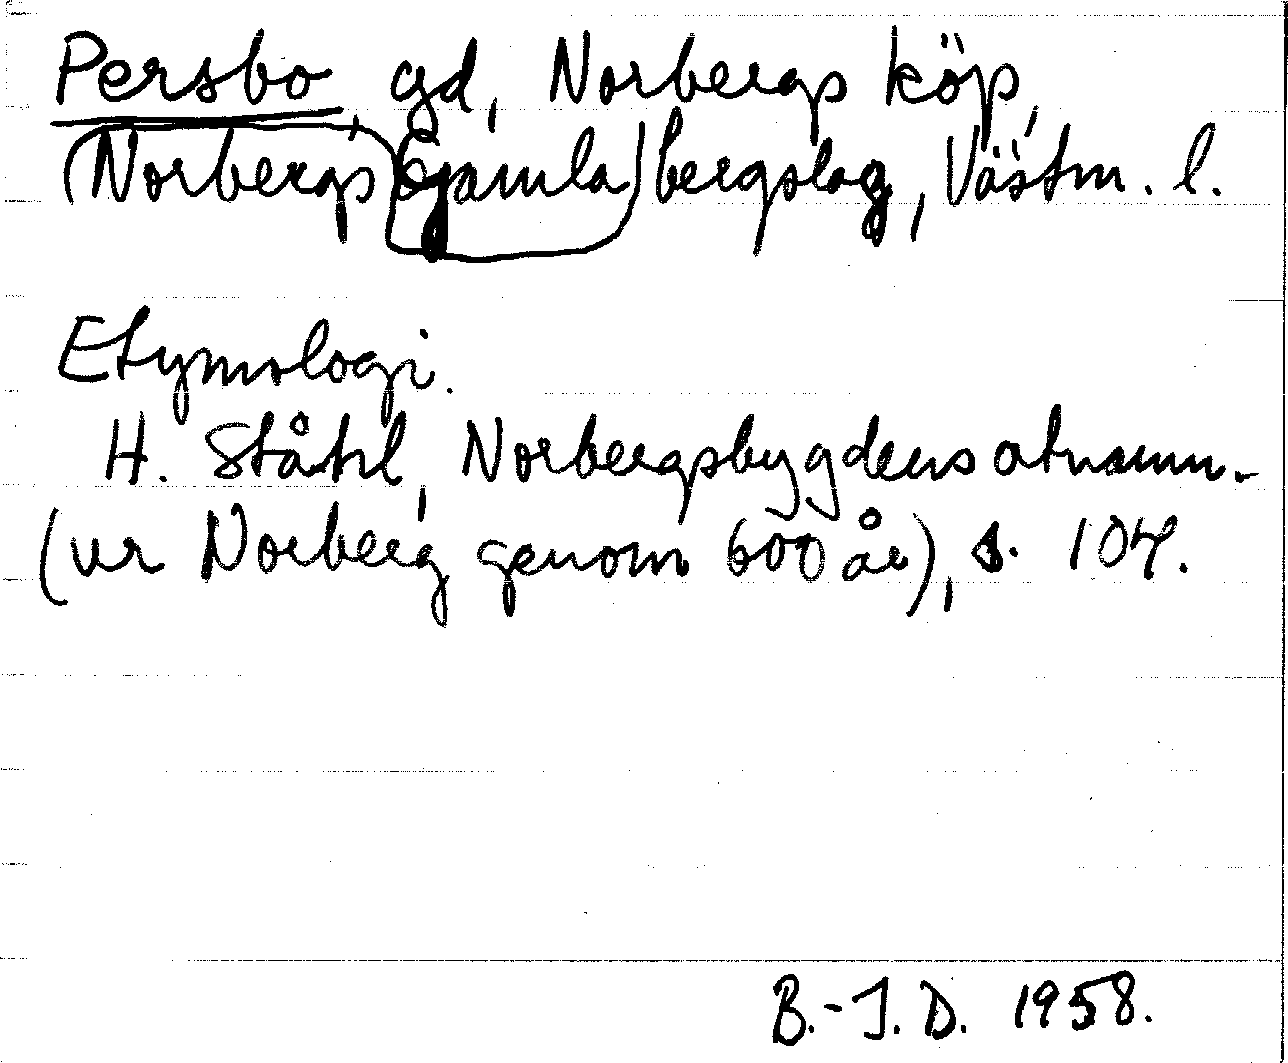 Persbo, gd, Norbergs köp,
(Norbergs Gamla) bergslag, Västm. l.
Etymologi.
H. Ståhl, Norbergsbygdens ortnamn.
(ur Norberg genom 600 år), s. 104.
B.-J.D. 1958.